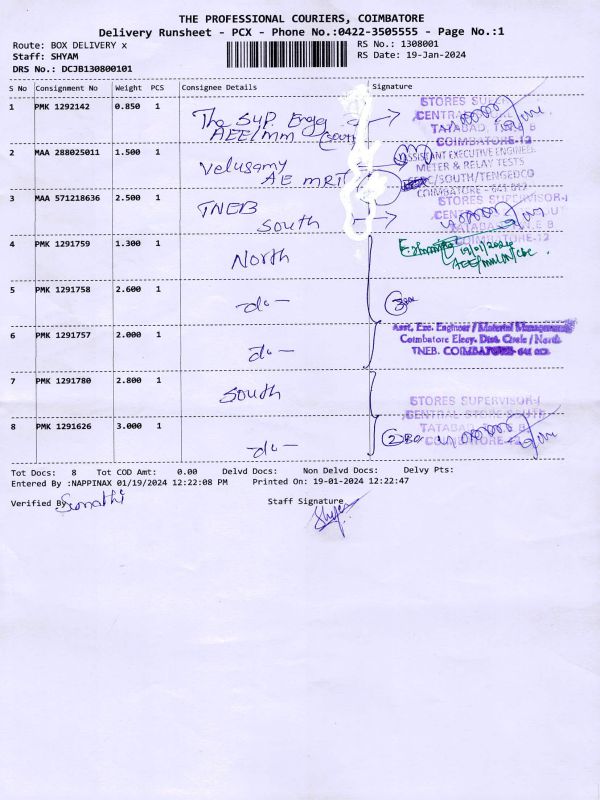 THE PROFESSIONAL COURIERS, COIMBATORE
Delivery Runsheet - PCX - Phone No.:0422-3505555 - Page No.:1
Route: BOX DELIVERY x
RS No.: 1308001
Staff: SHYAM
RS Date: 19-Jan-2024
DRS No.: DCJB130800101
S No Consignment No Weight PCS Consignee Details Signature
1 PMK 1292142 0.850 1 The Sup. Engg
AEE/MM (South
STORES
CENTRAL
TATABAD,
COIMBATORE-12
2 MAA 288025011 1.500 1 Velusamy
AE MRT
ASSISTANT EXECUTIVE ENGINEER
METER & RELAY TESTS
/SOUTH/TENGEDCO
COIMBATORE - 641 012
3 MAA 571218636 2.500 1 TNEB
South
STORES SUPERVISOR-I
TATABAD
COIMBATORE-12
4 PMK 1291759 1.300 1 North
19/01/2024
5 PMK 1291758 2.600 1 -do-
6 PMK 1291757 2.000 1 -do-
Asst. Exe. Engineer / Material Management
Coimbatore Elecy. Dist. Circle / North
TNEB. COIMBATORE- 641 012
7 PMK 1291780 2.800 1 South
8 PMK 1291626 3.000 1 -do-
STORES SUPERVISOR-I
CENTRAL STORE SOUTH
TATABAD
COIMBATORE-12
Tot Docs: 8 Tot COD Amt: 0.00 Delvd Docs: Non Delvd Docs: Delvy Pts:
Entered By :NAPPINAX 01/19/2024 12:22:08 PM Printed On: 19-01-2024 12:22:47
Verified By Sumathi
Staff Signature
Shyam